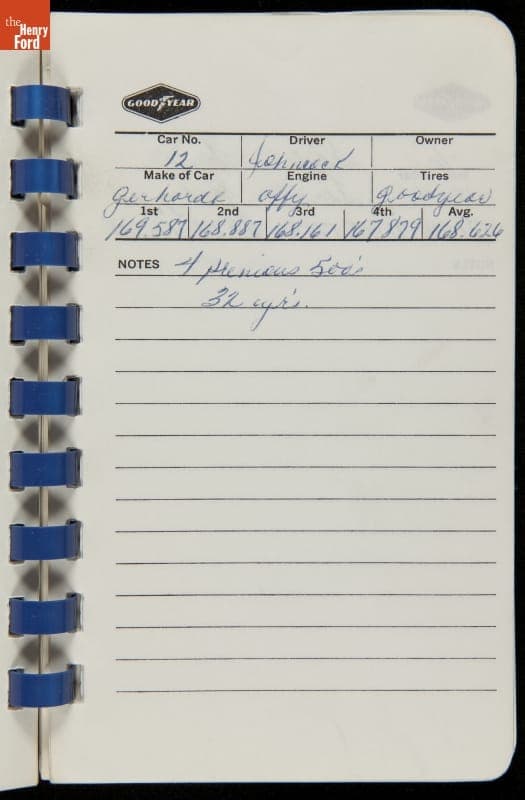 the Henry Ford
GOODYEAR
Car No. Driver Owner
12 Johncock
Make of Car Engine Tires
Gerhardt offy goodyear
1st 2nd 3rd 4th Avg.
169.587 168.887 168.161 167.879 168.626
NOTES 4 previous 500's
32 yr's.